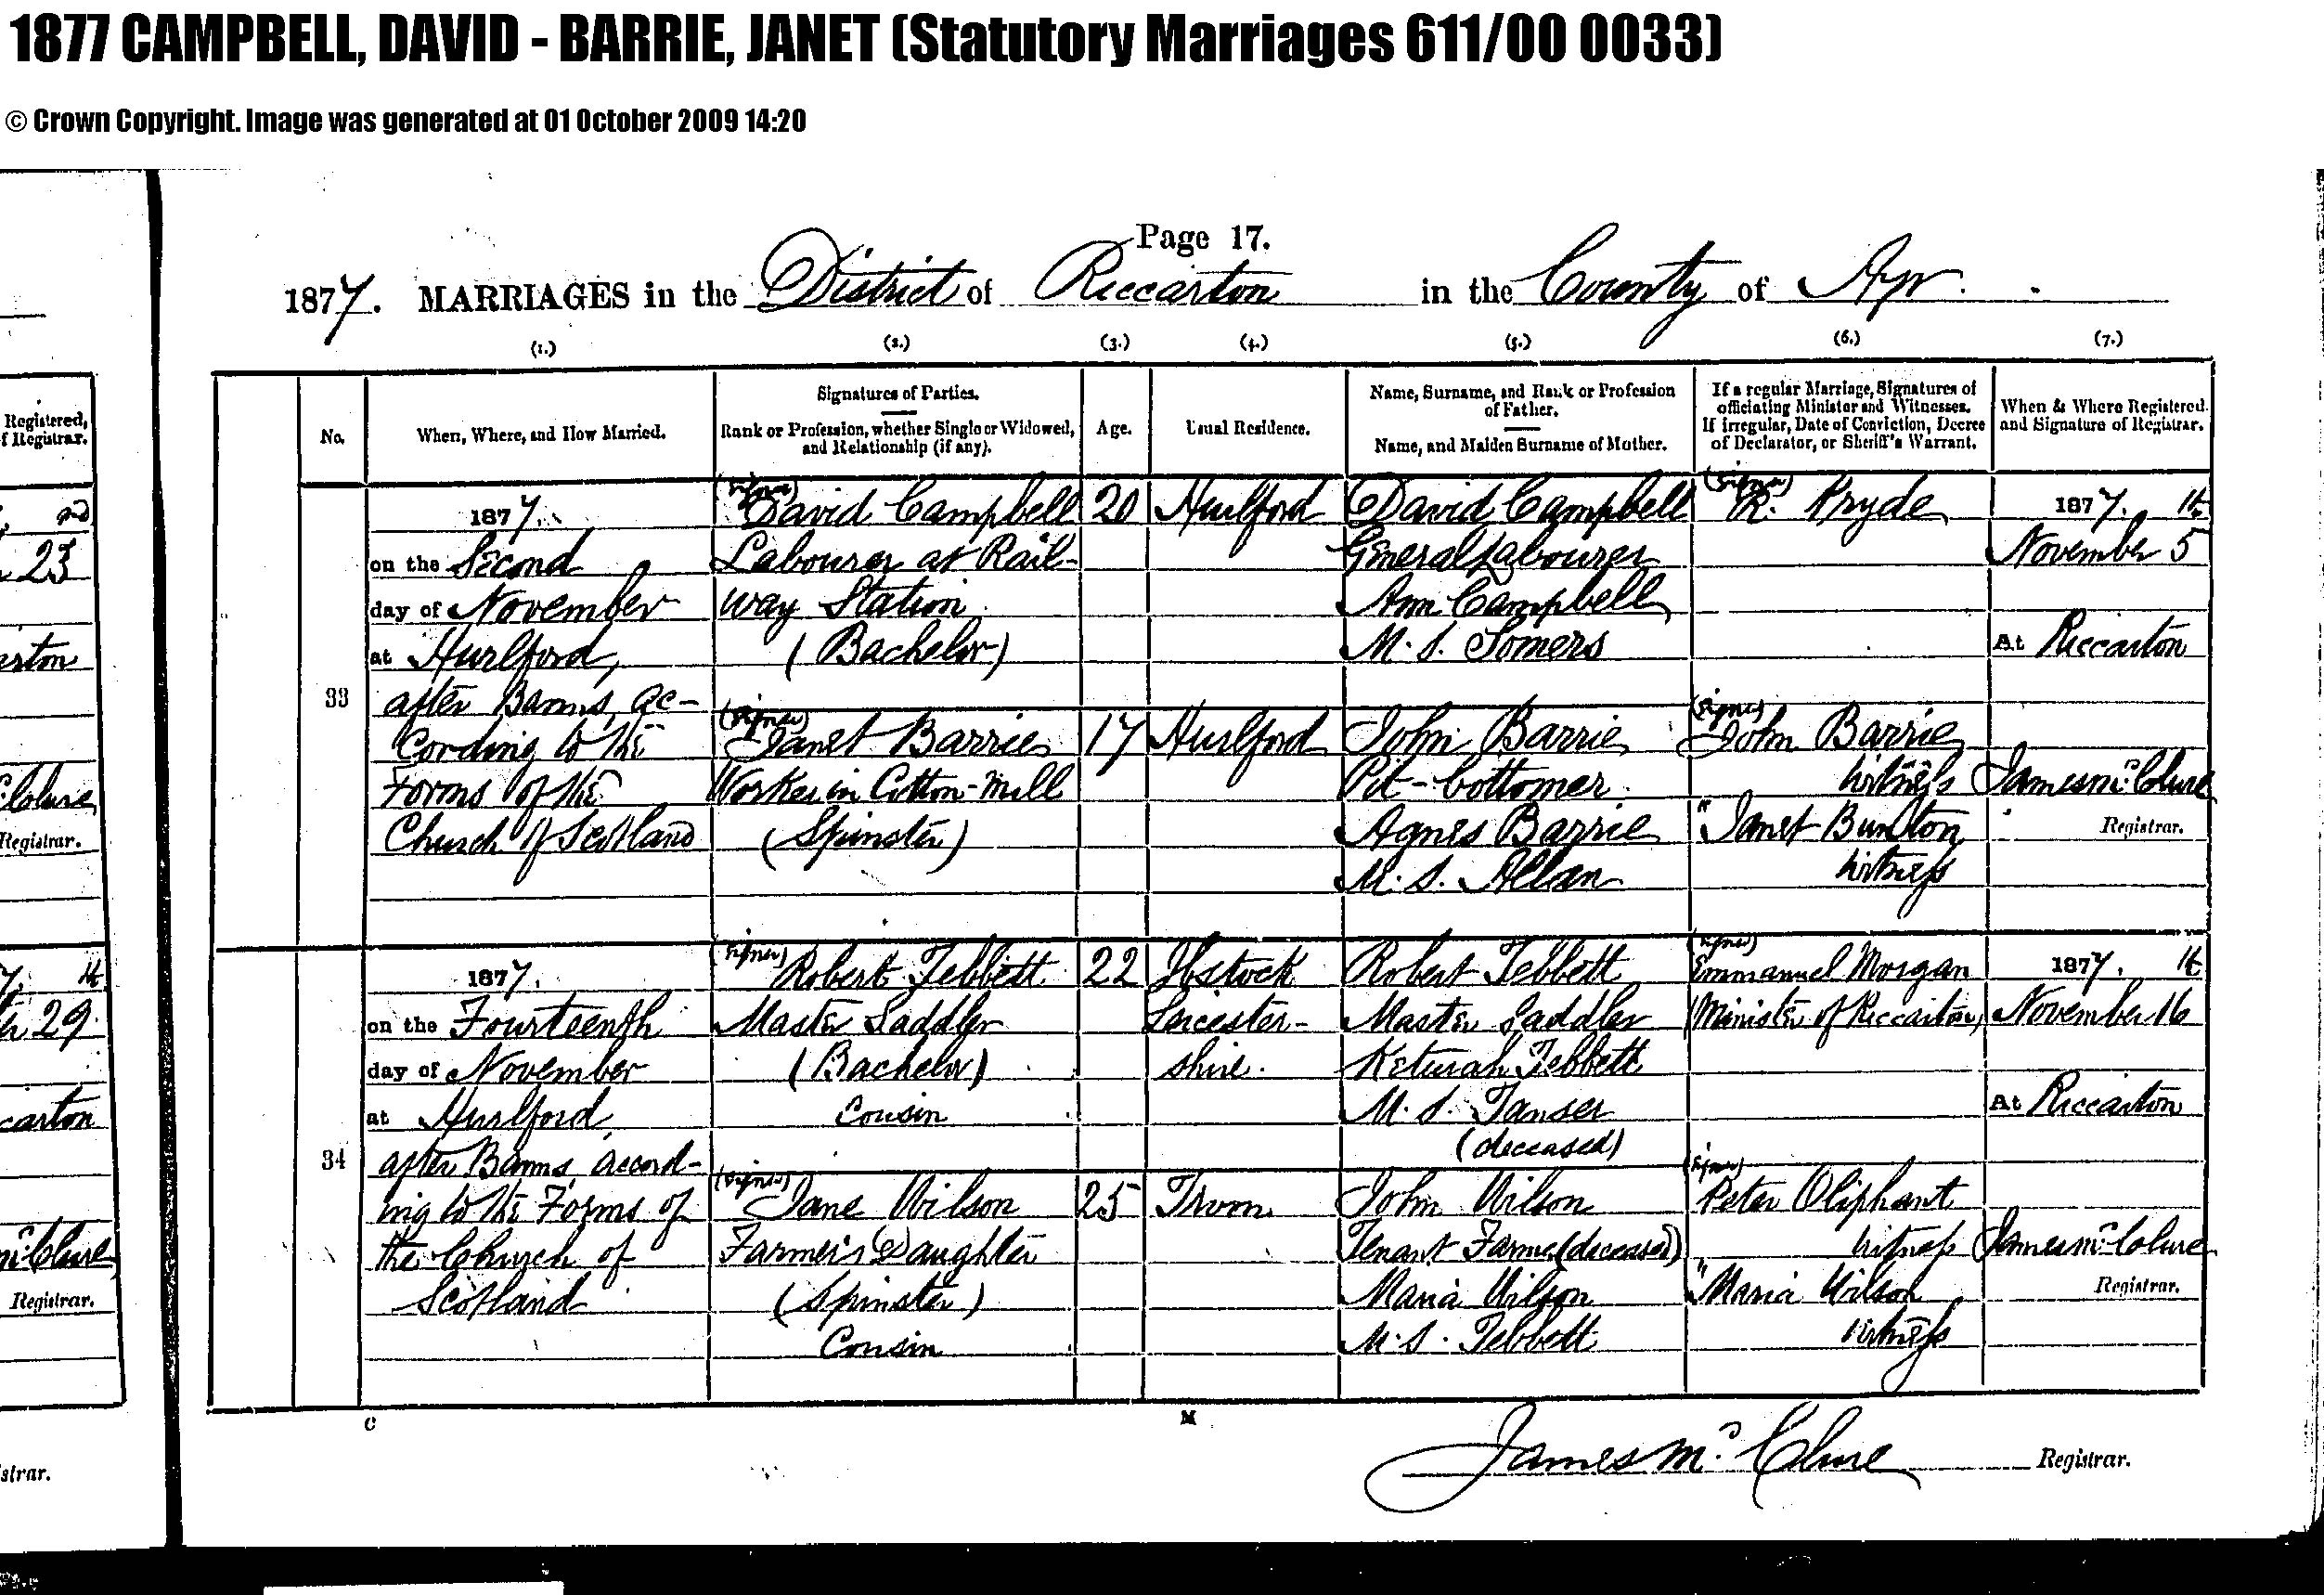 1877 CAMPBELL, DAVID - BARRIE, JANET (Statutory Marriages 611/00 0033)
© Crown Copyright. Image was generated at 01 October 2009 14:20
Page 17.
1877. MARRIAGES in the District of Riccarton in the County of Ayr.
(1.) (2.) (3.) (4.) (5.) (6.) (7.)
No.
When, Where, and How Married.
Signatures of Parties.
Rank or Profession, whether Single or Widowed,
and Relationship (if any).
Age.
Usual Residence.
Name, Surname, and Rank or Profession
of Father.
Name, and Maiden Surname of Mother.
If a regular Marriage, Signatures of
officiating Minister and Witnesses.
If irregular, Date of Conviction, Decree
of Declarator, or Sheriff's Warrant.
When & Where Registered
and Signature of Registrar.
Registered,
f Registrar.
23
arton
Clure
Registrar.
33
1877.
on the Second
day of November
at Hurlford,
after Banns, ac-
cording to the
Forms of the
Church of Scotland
(Signed)
David Campbell
Labourer at Rail-
way Station
(Bachelor)
20
Hurlford
David Campbell
General Labourer
Ann Campbell
M. S. Somers
(Signed)
R. Pryde
1877. th
November 5
At Riccarton
(Signed)
Janet Barrie
Worker in Cotton-Mill
(Spinster)
17
Hurlford
John Barrie
Pit-bottomer
Agnes Barrie
M. S. Allan
(Signed)
John Barrie
witness
" Janet Bunton
witness
James McClure
Registrar.
29
carton
McClure
Registrar.
34
1877.
on the Fourteenth
day of November
at Hurlford,
after Banns, accord-
ing to the Forms of
the Church of
Scotland
(Signed)
Robert Tebbett
Master Saddler
(Bachelor)
Cousin
22
Ibstock
Leicester-
shire.
Robert Tebbett
Master Saddler
Keturah Tebbett
M. S. Tanser
(deceased)
(Signed)
Emmanuel Morgan
Minister of Riccarton
1877. th
November 16
At Riccarton
(Signed)
Jane Wilson
Farmer's Daughter
(Spinster)
Cousin
25
John Wilson
Tenant Farmer (deceased)
Maria Wilson
M. S. Tebbett
(Signed)
Peter Oliphant
witness
" Maria Wilson
witness
James McClure
Registrar.
C M
James McClure Registrar.
strar.